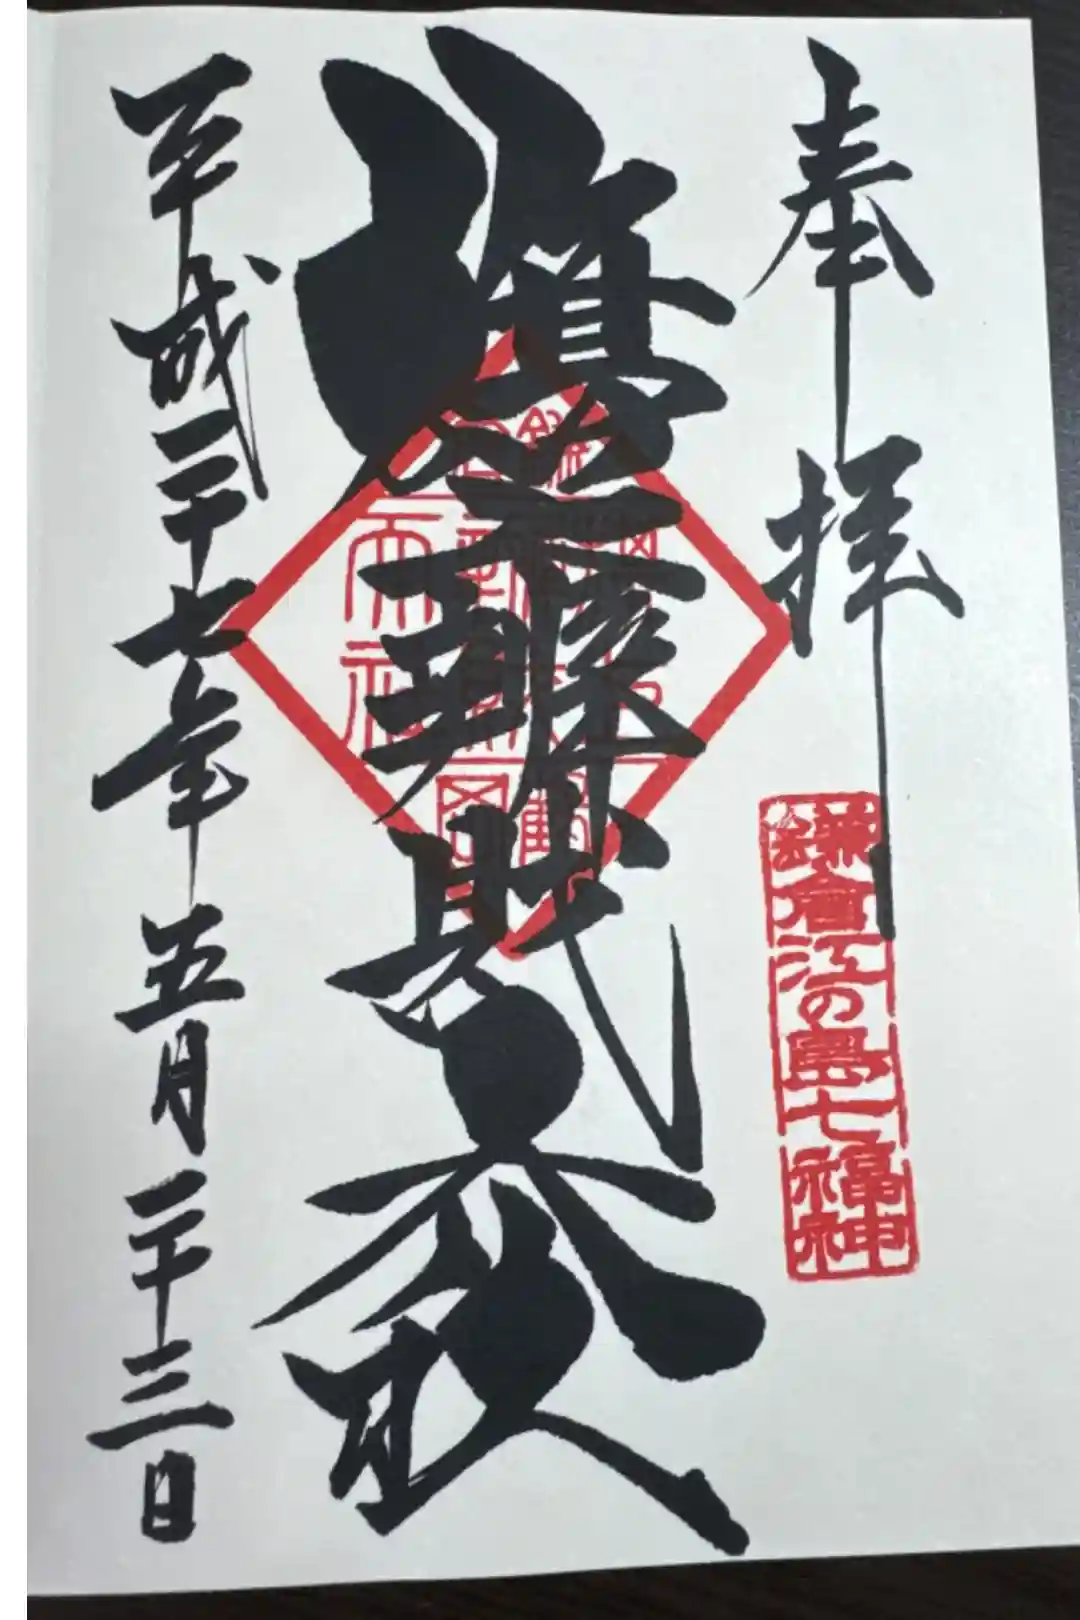 奉拝
鎌倉江の島七福神
旗上辨財天
平成二十七年五月二十三日